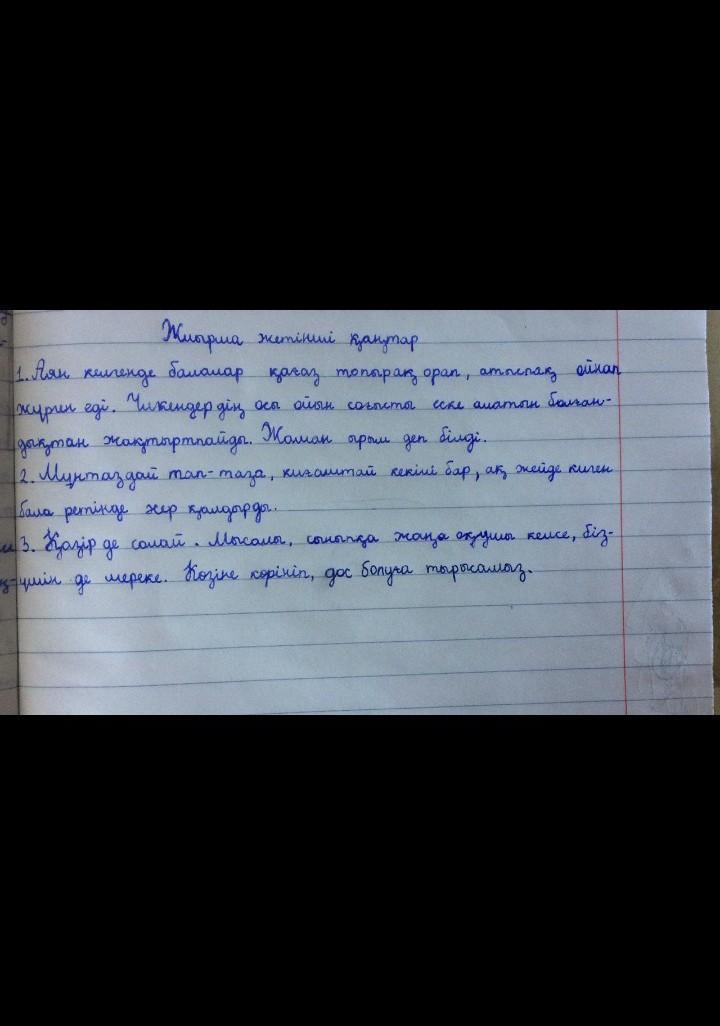 Жиырма жетінші қаңтар
1. Аян келгенде балалар қағаз топырақ орап, атыспақ ойнап
жүрген еді. Үлкендердің осы ойын соғысты еске алатын болған-
дықтан жақтыртпайды. Жаман ырым деп білді.
2. Мұнтаздай тап-таза, қиғаштай кекілі бар, ақ жейде киген
бала ретінде жер қалдырды.
3. Қазір де солай. Мысалы, сыныпқа жаңа оқушы келсе, біз-
үшін де мереке. Көзіне көрініп, дос болуға тырысамыз.